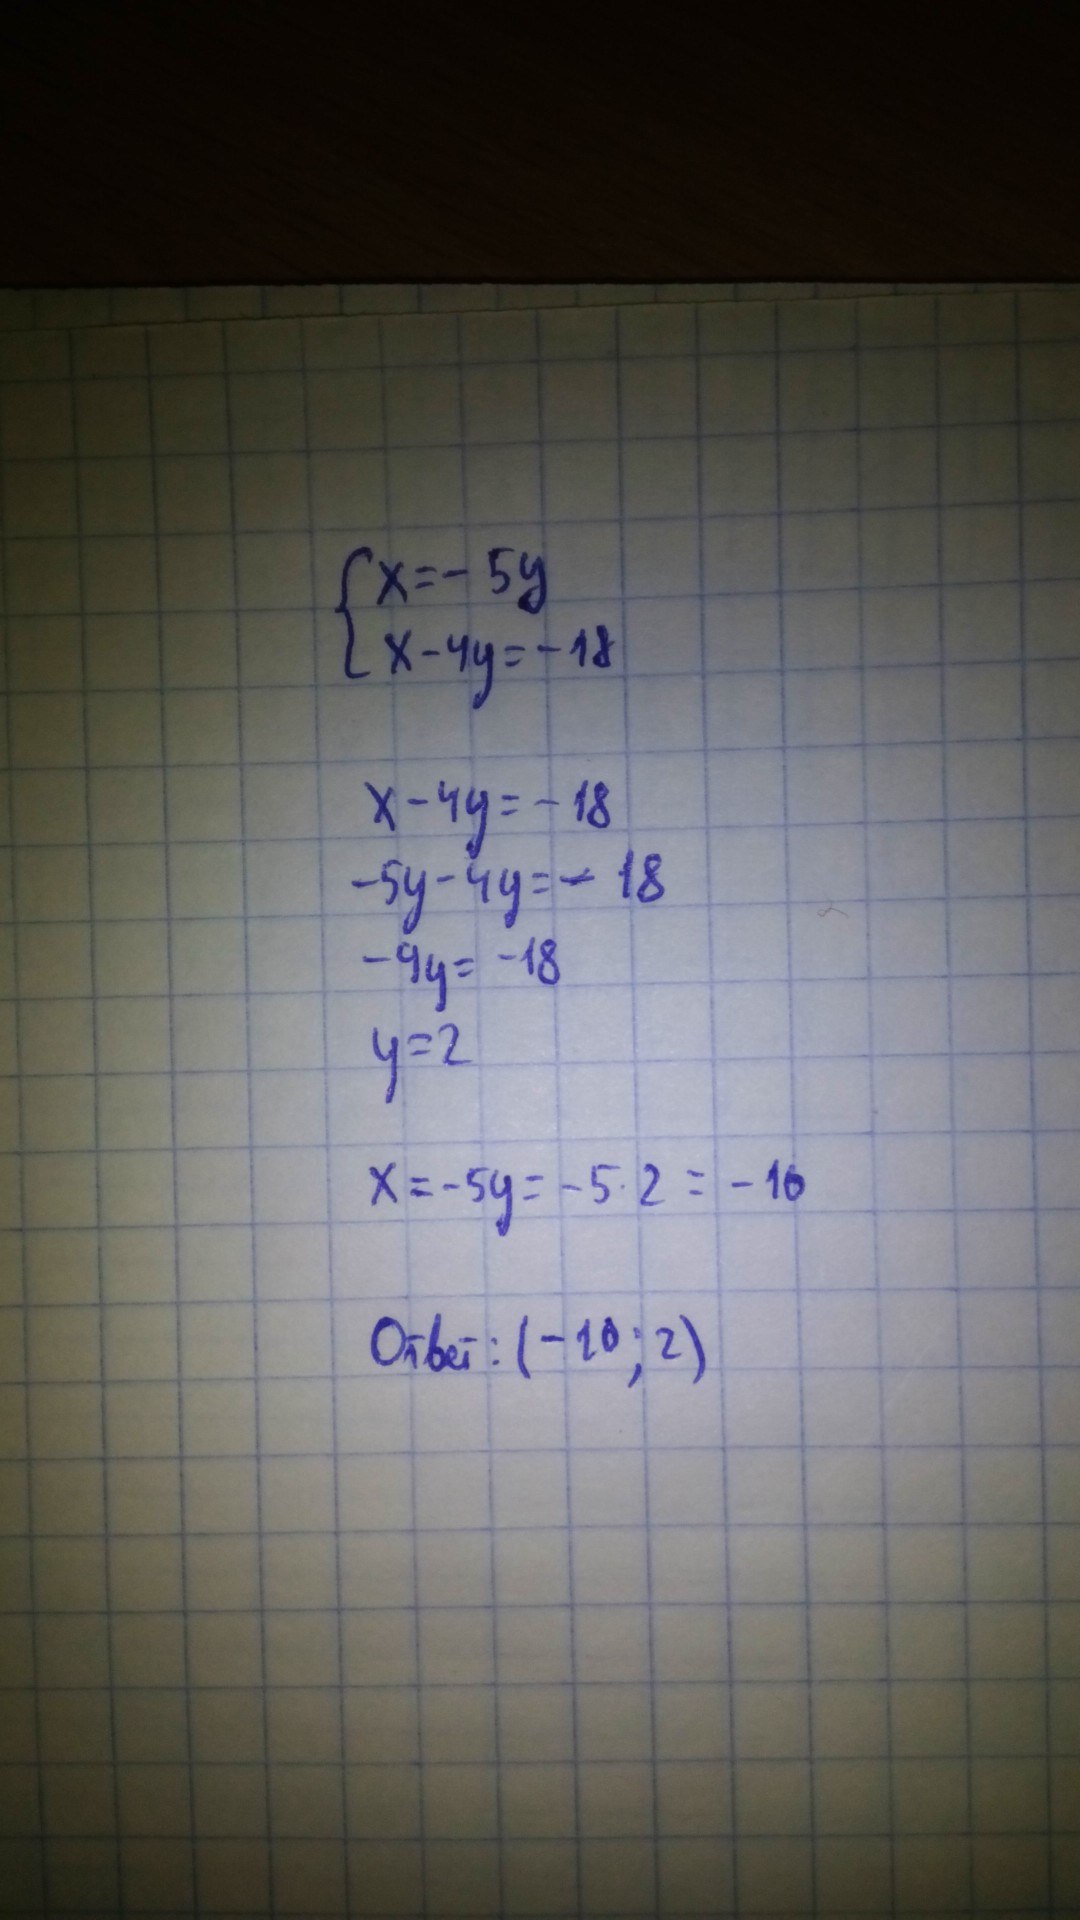 {x=-5y
x-4y=-18
x-4y=-18
-5y-4y=-18
-9y=-18
y=2
x=-5y=-5·2=-10
Ответ: (-10; 2)